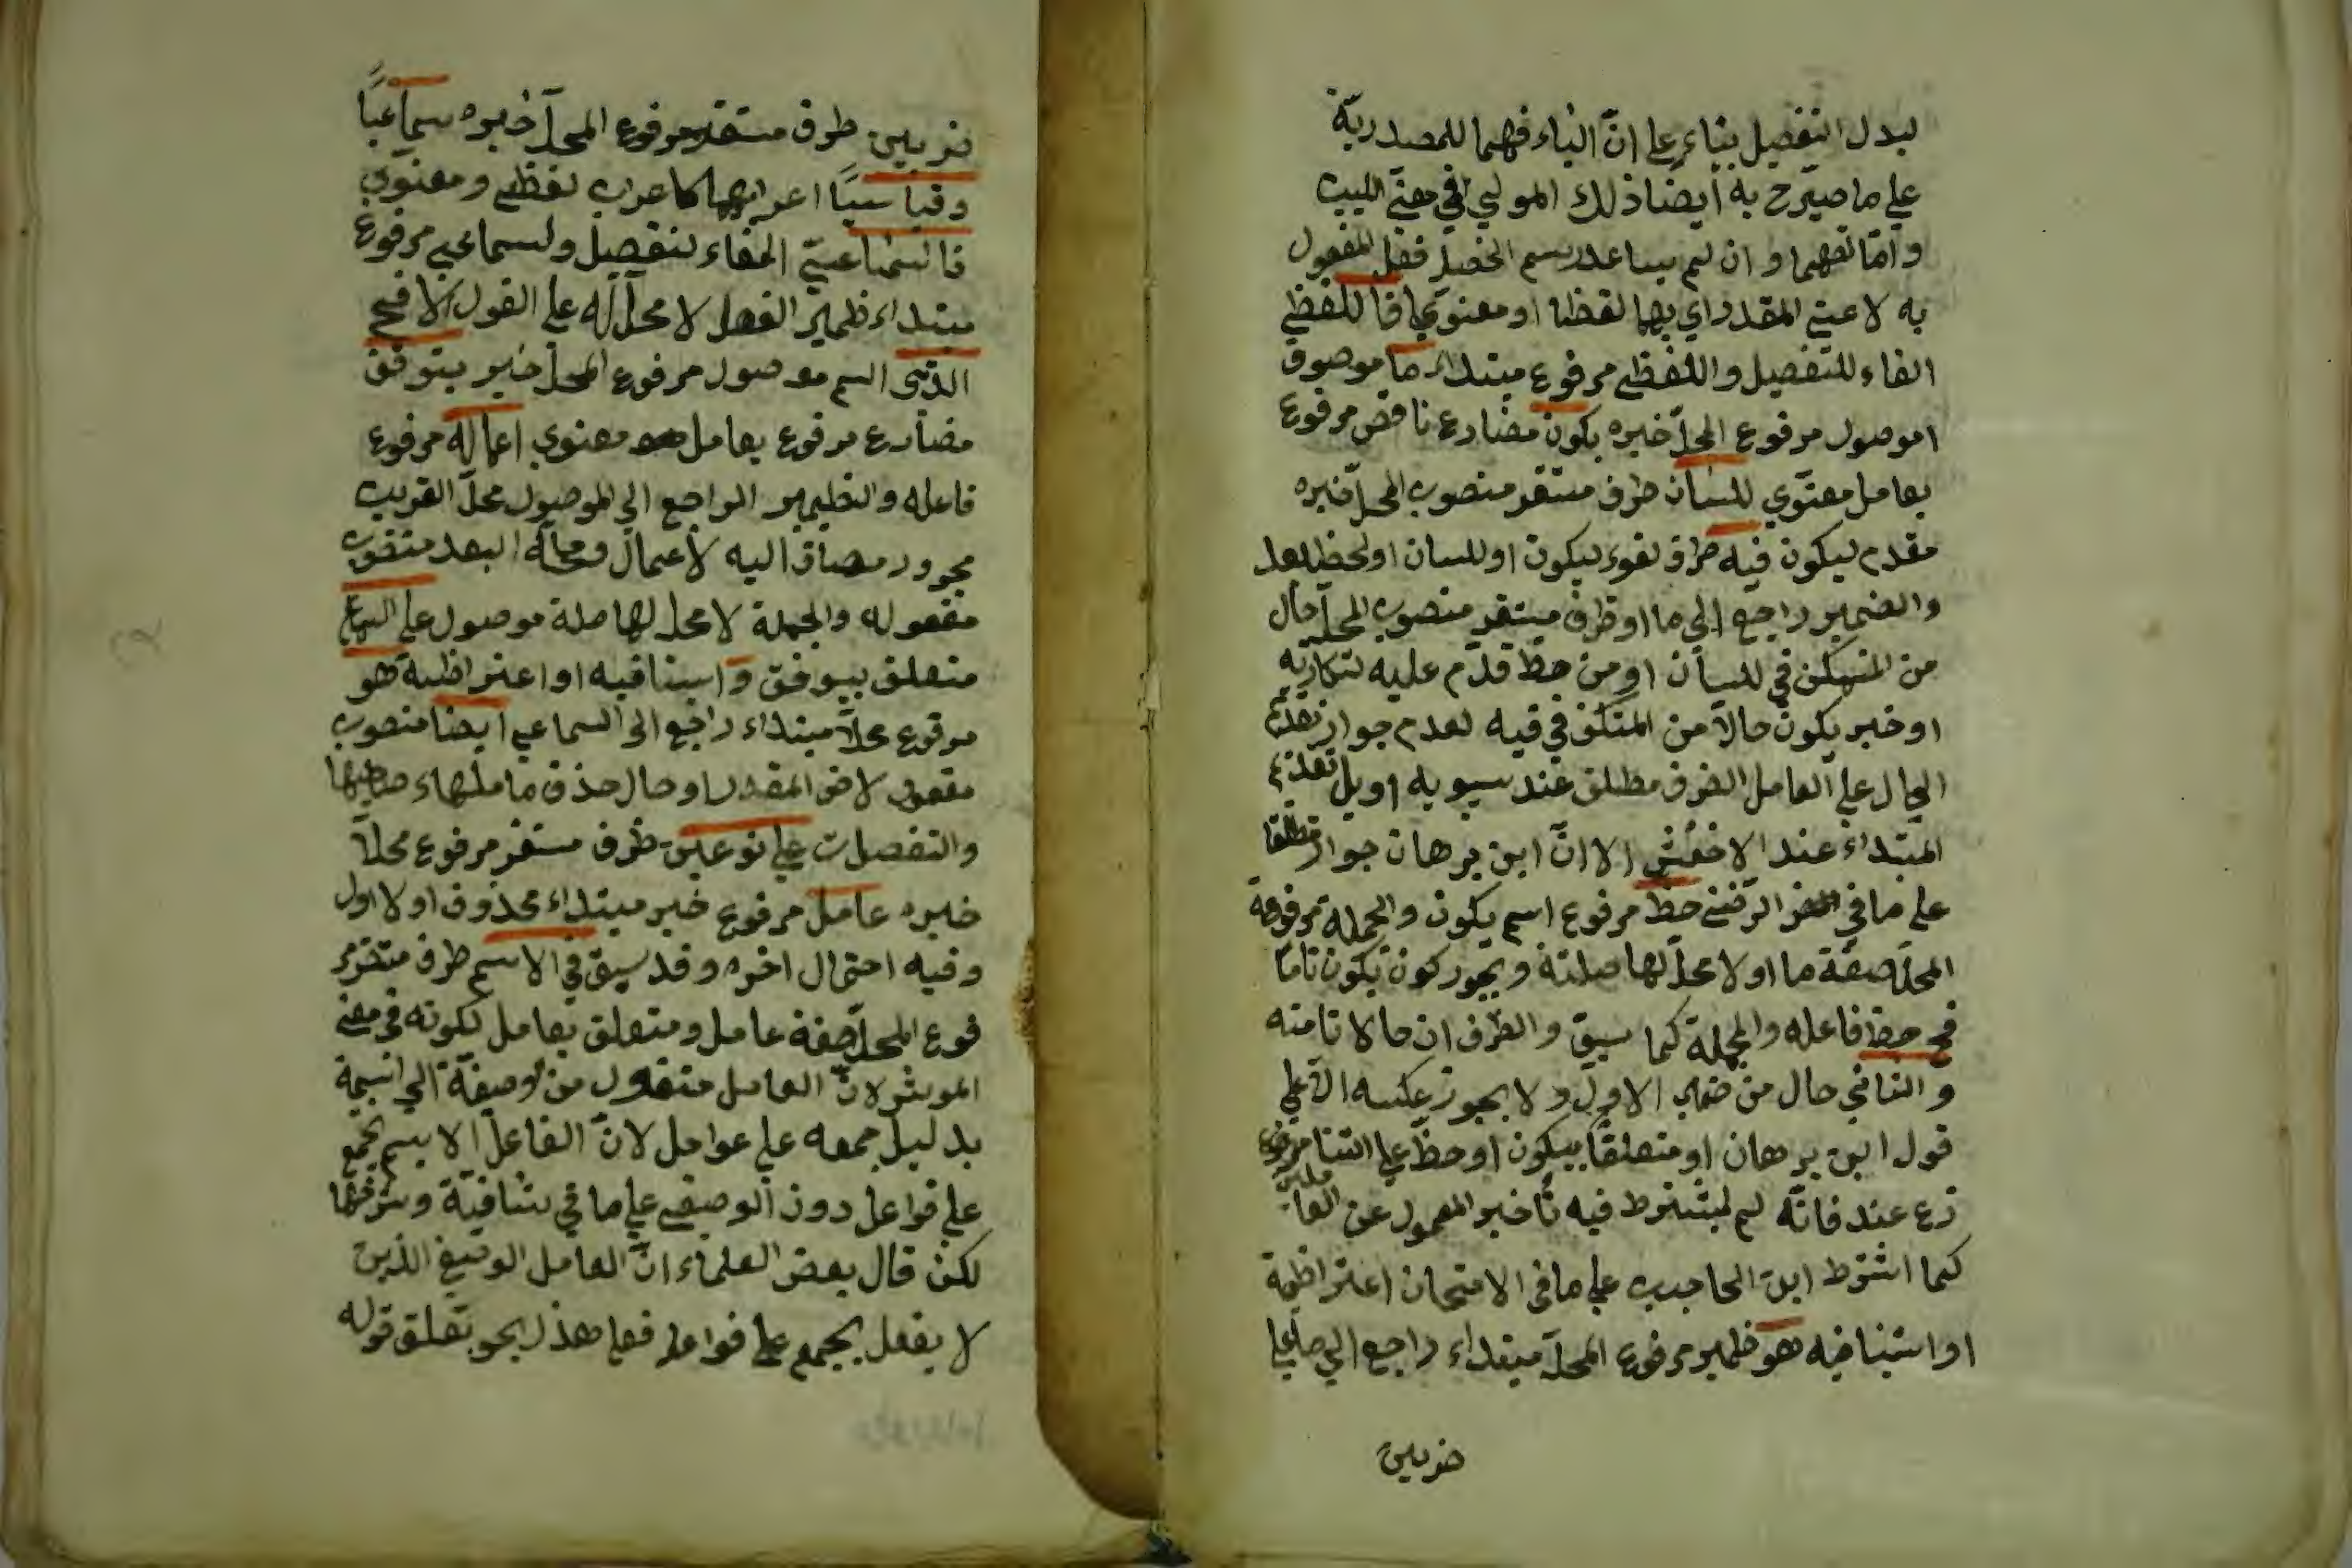 لبدل التفصيل بناء على انّ الياء فهما للمصدريّة
على ما صرّح به أيضا ذلك المولي في معنّي اللبيب
وامّا لفهما وان لم يساعد رسم الخط فعل المفعول
به لا عني المقدر اي بهما لفظا او معنوي فاللفظي
الفاء للتفصيل واللفظي مرفوع مبتداء ما موصوف
اموصول مرفوع المحلّ خبره يكون مضارع ناقص مرفوع
بعامل معنوي للسان ظرف مستقر منصوب المحلّ خبره
مقدم ليكون فيه ظرف لغو ليكون او للسان او لحظ بعد
والضمير راجع الي ما او ظرف مستقر منصوب المحلّ حال
من المتمكن في للسان او من حظّ قدّم عليه لنكارته
او خبر يكون حالا من المتكن في فيه لعدم جواز تقديم
الحال على العامل الضرف مطلق عند سيبويه او بل تقديم
المبتداء عند الاخفش الا انّ ابن برهان جواز مطلقا
على ما في الرضي حظ مرفوع اسم يكون والجملة مرفوعة
المحلّ صفة ما او لا محلّ لها صلته ويجوز كون يكون تامّا
فح حظ فاعله والجملة كما سبق والظرف ان حالا تا منه
والثاني حال من ضمير الاول ولا يجوز عكسه الا على
قول ابن برهان او متعلقا بيكون او حظّ على التنا مرفوع
زع عند فانّه لم يشترط فيه تأخير المعمول عن العا ملين
كما اشترط ابن الحاجب على ما في الامتحان اعتراظية
او استينافيه هو ظمير مرفوع المحلّ مبتداء راجع الي ما على
ضربين
ضربين ظرف مستقر مرفوع المحلّ خبره سماعيّا
وقياسيّا اعرابهما كاعرب لفظي ومعنوي
فالسماعيّ الفاء لتفصيل ولسماعي مرفوع
مبتداء ظمير الفصل لا محلّ له على القول الافصح
الذي اسم موصول مرفوع المحلّ خبر يتوقف
مضارع مرفوع بعامل معنوي اعماله مرفوع
فاعله والظمير الراجع الي الموصول محلّ القريب
مجرور مضاف اليه لأعمال ومحلّه البعد منصوب
مفعوله والجملة لا محلّ لها صلة موصول على السماع
متعلق بيوقف و استنافيه او اعتراظية هو
مرفوع محلاّ مبتداء راجع الى السماعي ايضا منصوب
مفعول لاض المقدر او حال حذف عاملها وصاحبها
والتفصلات على نوعين ظرف مستقر مرفوع محلاّ
خبره عامل مرفوع خبر مبتداء محذوف او لا اول
وفيه احتمال اخره وقد سبق في الاسم ظرف متقرمر
فوع المحلّ صفة عامل ومتعلق بعامل لكونه في معنى
الموثر لانّ العامل منقول من وصيفة الي اسمية
بدليل جمعه على عوامل لانّ الفاعل الاسم يجمع
على فواعل دون الوصفي على ما في شافية وشرحها
لكن قال بعض العلماء انّ العامل الوصيفي الذين
لا يفعل يجمع على فواعل فعلي هذا يجو تعلق قوله